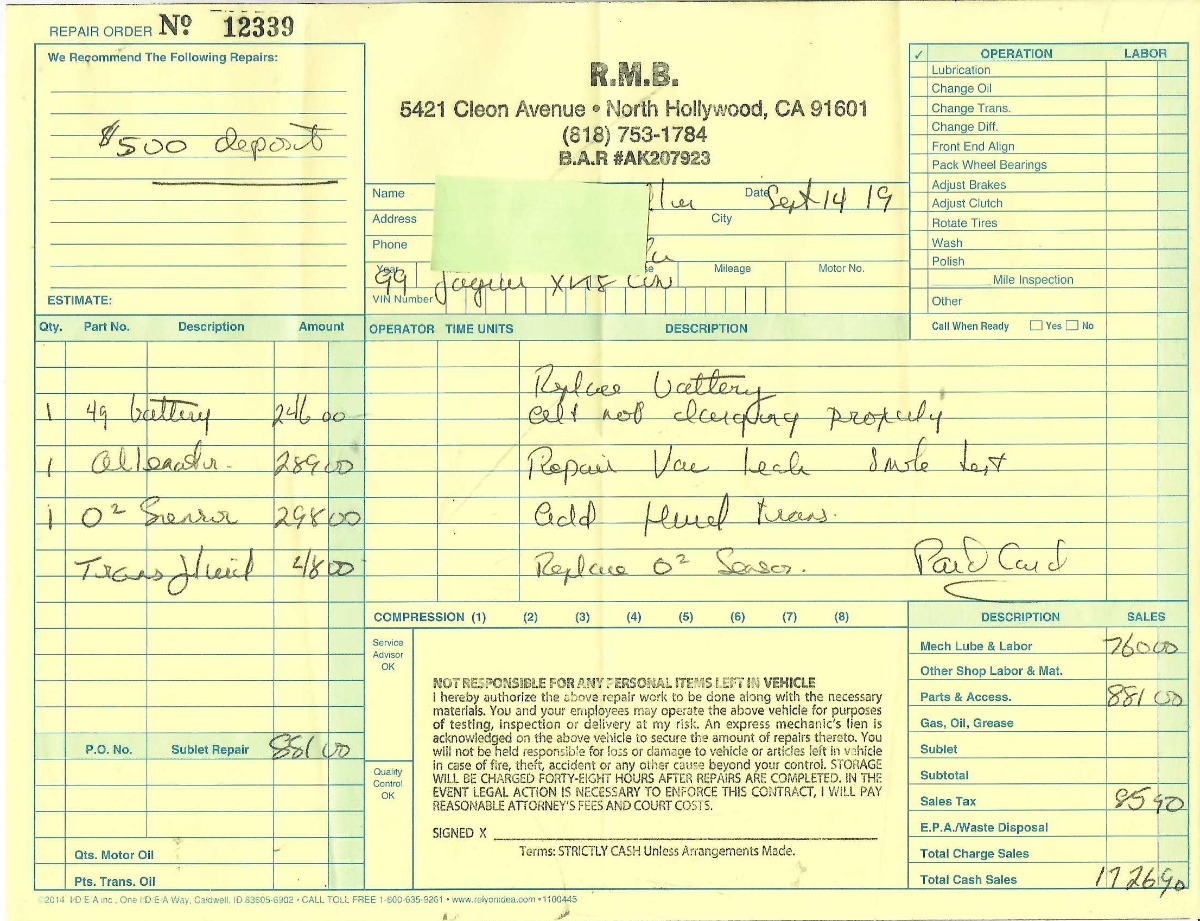 REPAIR ORDER Nº 12339
We Recommend The Following Repairs:
$500 deposit
ESTIMATE:
R.M.B.
5421 Cleon Avenue • North Hollywood, CA 91601
(818) 753-1784
B.A.R #AK207923
Name Date Sept 14 19
Address City
Phone
Year Mileage Motor No.
99 Jaguar
VIN Number
✓ OPERATION LABOR
Lubrication
Change Oil
Change Trans.
Change Diff.
Front End Align
Pack Wheel Bearings
Adjust Brakes
Adjust Clutch
Rotate Tires
Wash
Polish
Mile Inspection
Other
Call When Ready Yes No
Qty. Part No. Description Amount
1 49 battery 246 00
1 Alternator. 289 00
1 O2 Sensor 298 00
Trans fluid 48 00
P.O. No. Sublet Repair 881 00
Qts. Motor Oil
Pts. Trans. Oil
OPERATOR TIME UNITS DESCRIPTION
Replace battery
alt not charging properly
Repair Vac leak Smoke test
Add fluid trans.
Replace O2 Sensor. Paid Card
COMPRESSION (1) (2) (3) (4) (5) (6) (7) (8)
Service Advisor OK
Quality Control OK
NOT RESPONSIBLE FOR ANY PERSONAL ITEMS LEFT IN VEHICLE
I hereby authorize the above repair work to be done along with the necessary
materials. You and your employees may operate the above vehicle for purposes
of testing, inspection or delivery at my risk. An express mechanic's lien is
acknowledged on the above vehicle to secure the amount of repairs thereto. You
will not be held responsible for loss or damage to vehicle or articles left in vehicle
in case of fire, theft, accident or any other cause beyond your control. STORAGE
WILL BE CHARGED FORTY-EIGHT HOURS AFTER REPAIRS ARE COMPLETED. IN THE
EVENT LEGAL ACTION IS NECESSARY TO ENFORCE THIS CONTRACT, I WILL PAY
REASONABLE ATTORNEY'S FEES AND COURT COSTS.
SIGNED X
Terms: STRICTLY CASH Unless Arrangements Made.
DESCRIPTION SALES
Mech Lube & Labor 760 00
Other Shop Labor & Mat.
Parts & Access. 881 00
Gas, Oil, Grease
Sublet
Subtotal
Sales Tax 85 90
E.P.A./Waste Disposal
Total Charge Sales
Total Cash Sales 1726 90
©2014 I·D·E·A inc., One I·D·E·A Way, Caldwell, ID 83605-6902 • CALL TOLL FREE 1-800-635-9261 • www.relyonidea.com •1100445